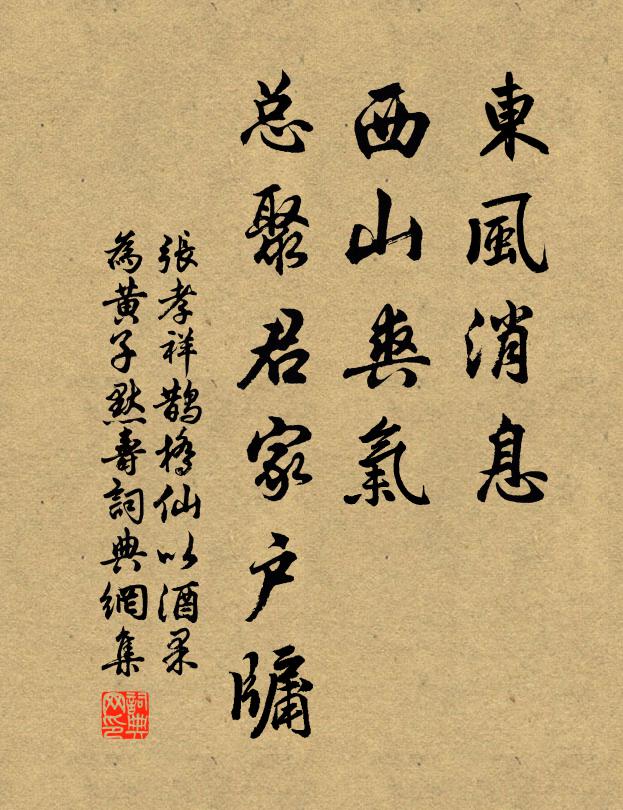 東風消息
西山爽氣
总聚君家戶牖
張孝祥鵲橋仙以酒果
為黃子默壽詞典網集
詞典
网印